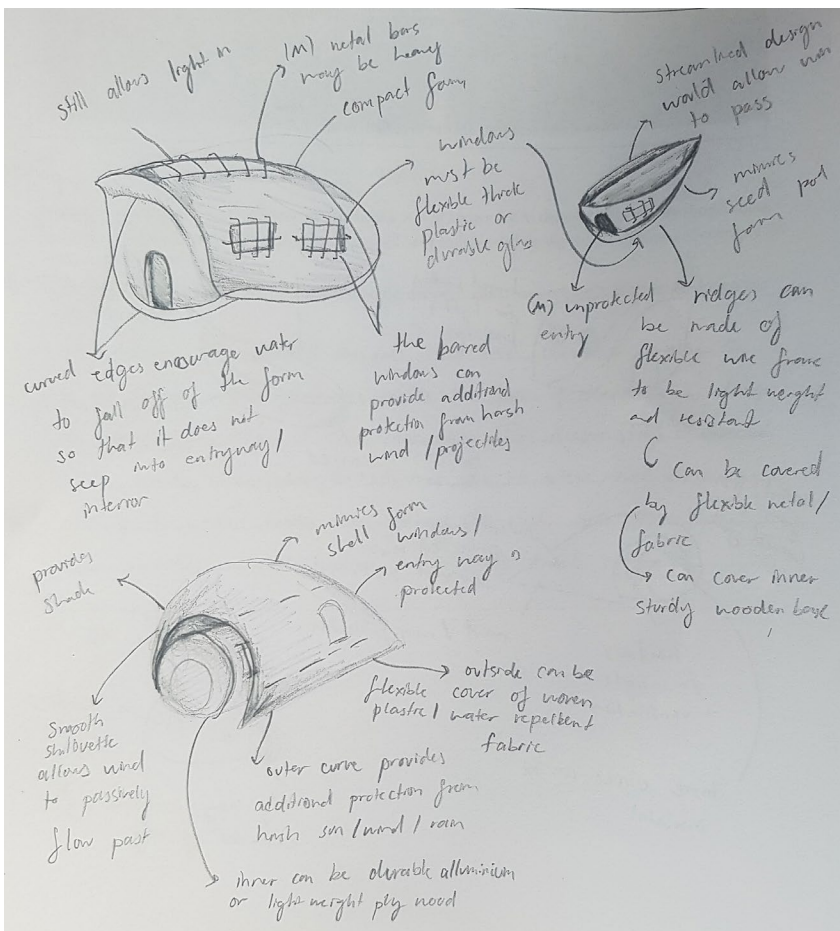 still allows light in
(M) metal bars
may be heavy
compact form
windows
must be
flexible thick
plastic or
durable glass
streamlined design
would allow wind
to pass
mimics
seed pod
form
(M) unprotected
entry
ridges can
be made of
flexible wire frame
to be light weight
and resistant
can be covered
by flexible metal/
fabric
can cover inner
sturdy wooden base
curved edges encourage water
to fall off of the form
so that it does not
seep into entryway/
interior
the barred
windows can
provide additional
protection from harsh
wind / projectiles
provides
shade
mimics
shell form
windows/
entry way is
protected
outside can be
flexible cover of woven
plastic/ water repellent
fabric
smooth
shilouette
allows wind
to passively
flow past
outer curve provides
additional protection from
harsh sun/wind/rain
inner can be durable alluminium
or light weight ply wood